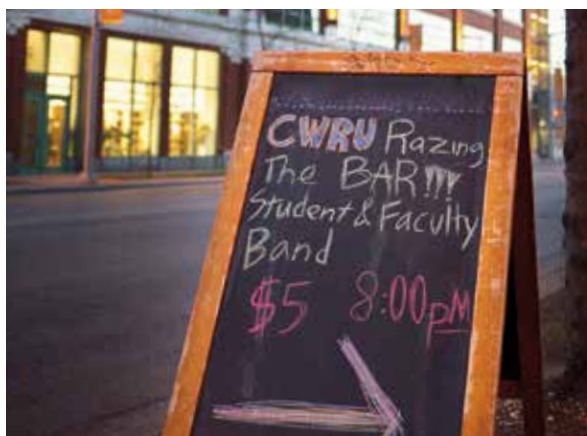 CWRU Razing
The BAR!!!
Student & Faculty
Band
$5 8:00 pM